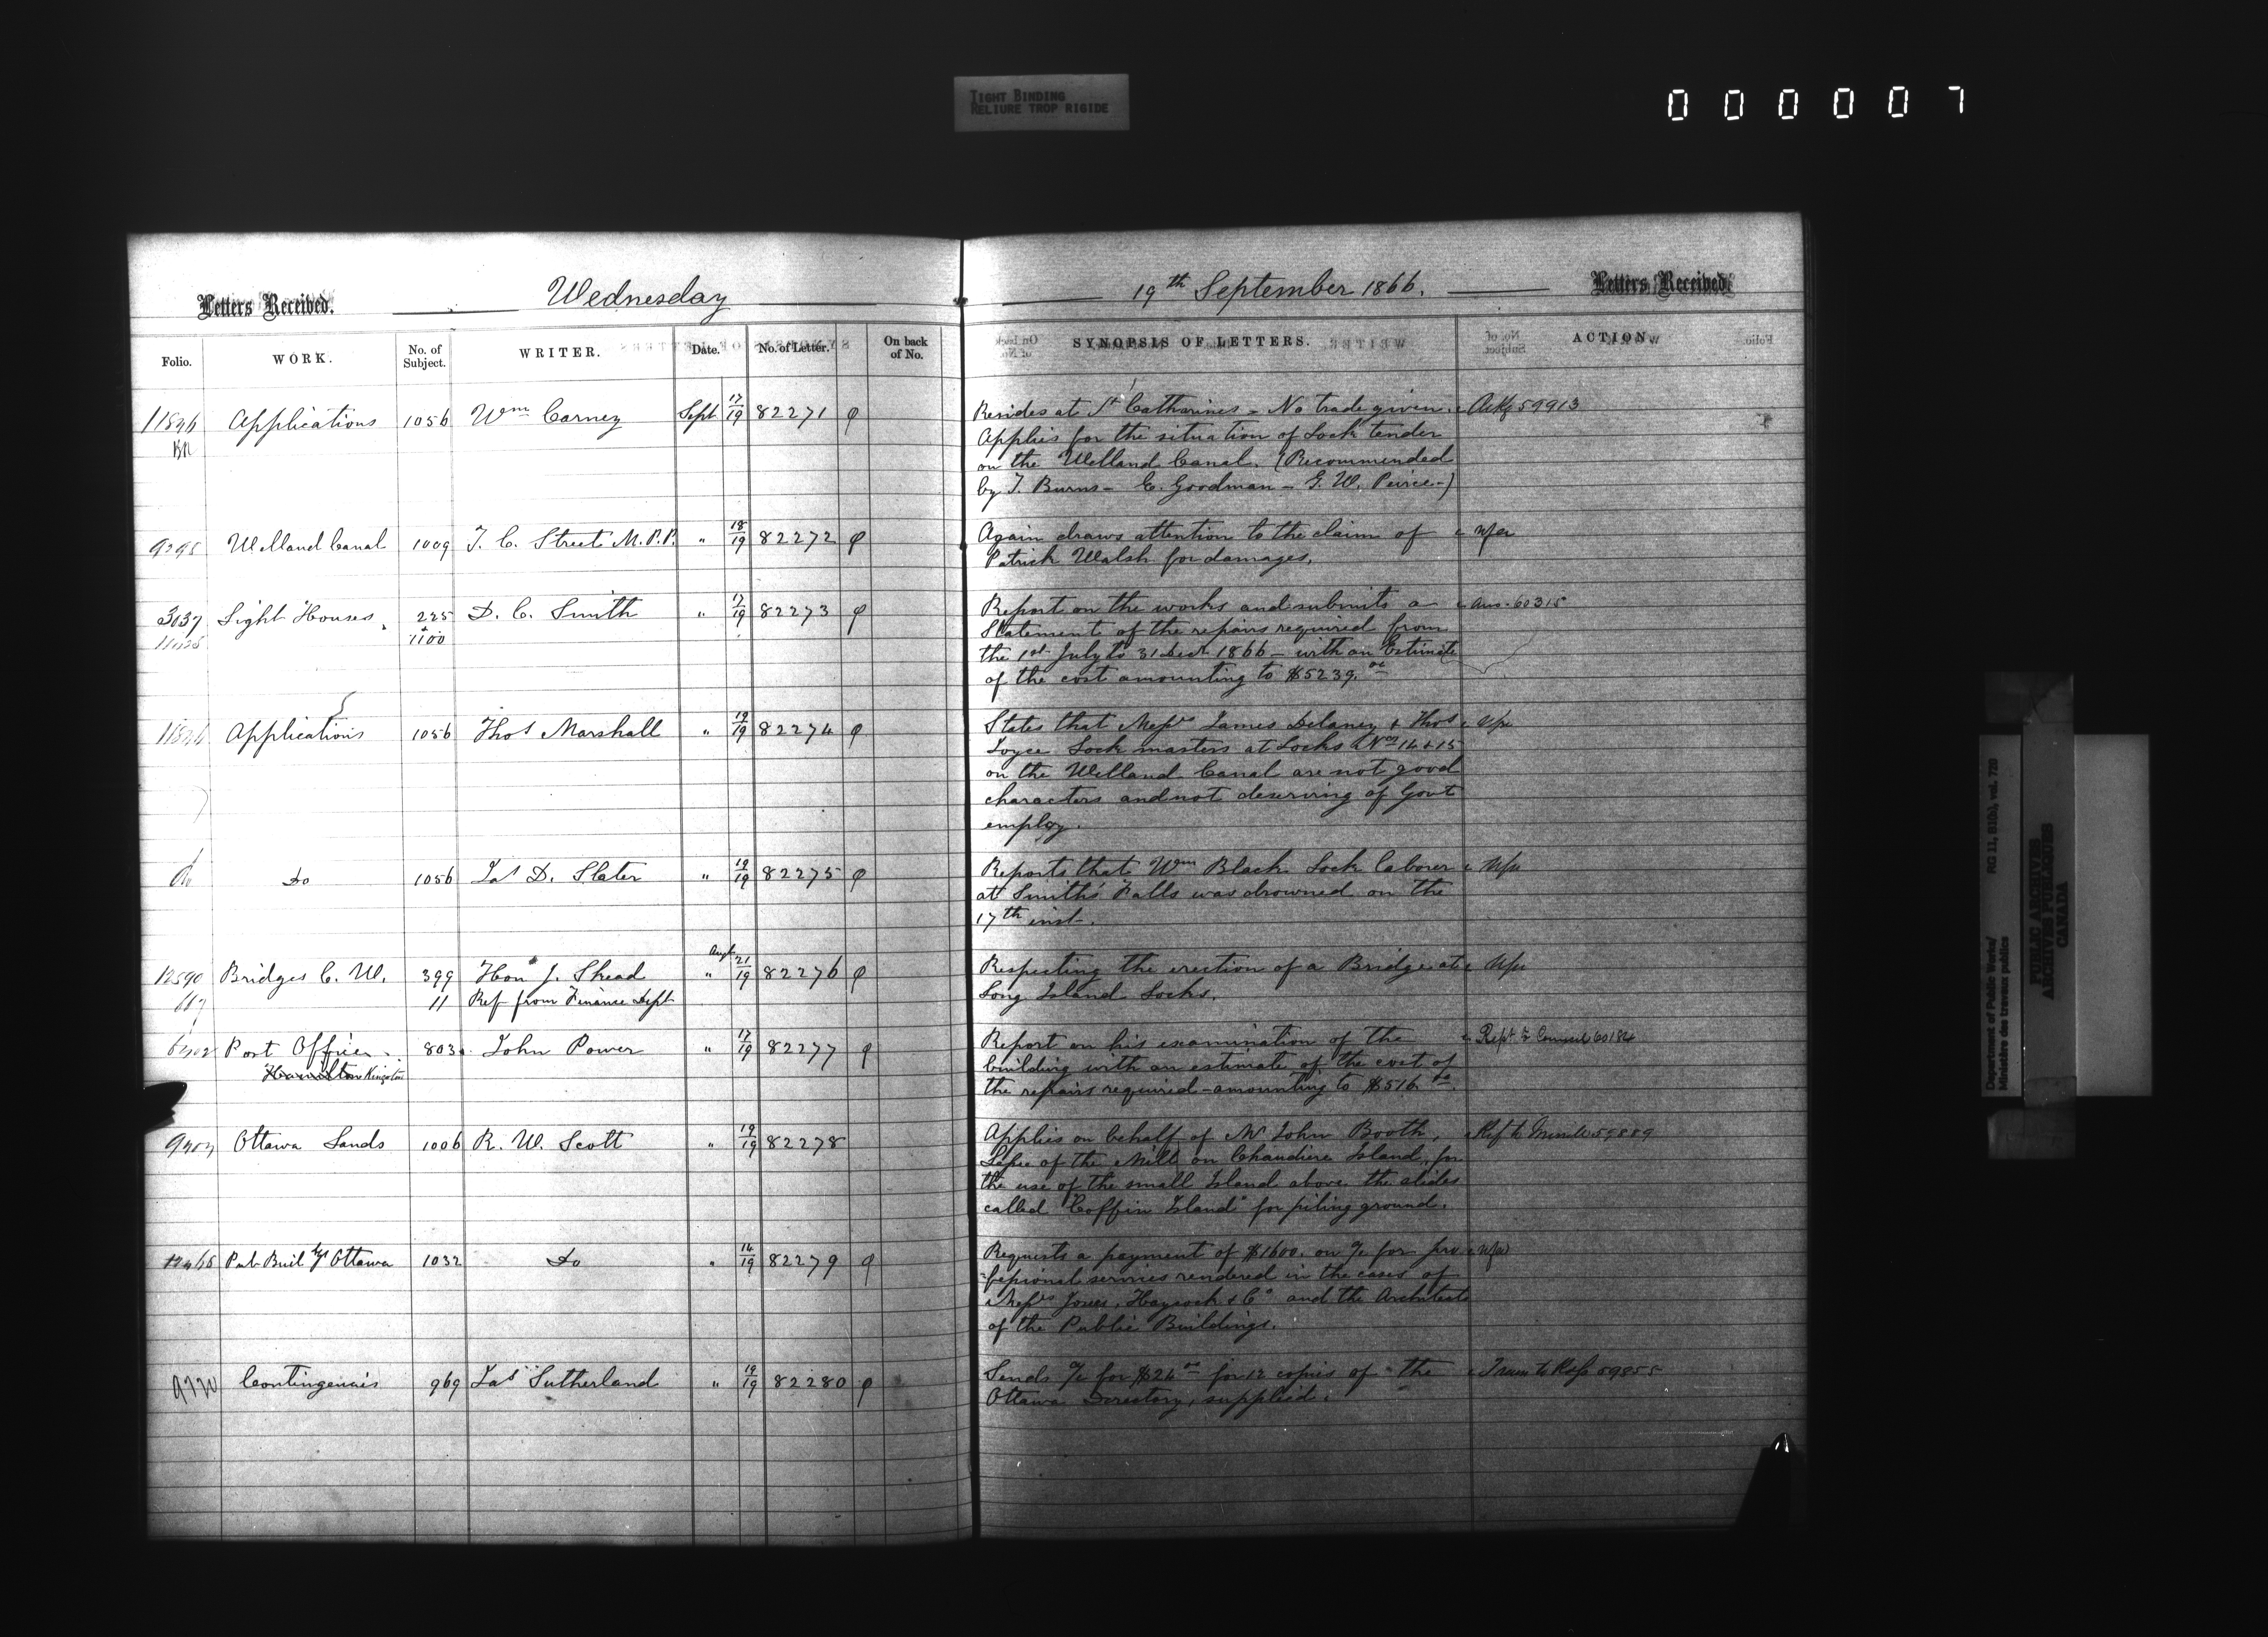 TIGHT BINDING
RELIURE TROP RIGIDE
000007
Letters Received. Wednesday
19th September 1866. Letters Received.
Folio. WORK. No. of Subject. WRITER. Date. No. of Letter. On back of No. SYNOPSIS OF LETTERS. ACTION.
Applications 1056 Wm Carney Sept 17/19 82271 Resides at St Catharines - No trade given. Ackg 59913
Applies for the situation of Lock tender
on the Welland Canal. (Recommended
by T. Burns - C. Goodman - G. W. Peirce -)
Welland Canal 1009 T. C. Street M.P.P. " 18/19 82272 Again draws attention to the claim of
Patrick Walsh for damages.
3037 Light Houses 225 D. C. Smith " 17/19 82273 Report on the works and submits a Ans. 60315
+ 1100 Statement of the repairs required from
the 1st July to 31 Decr 1866 - with an Estimate
of the cost amounting to $5239.00
Applications 1056 Thos Marshall " 19/19 82274 States that Messrs James Delaney & Thos
Joyce Lock masters at Locks Nos 14 & 15
on the Welland Canal are not good
characters and not deserving of Govt
employ.
Do Do 1056 Jas D. Slater " 19/19 82275 Reports that Wm Black Lock laborer
at Smith's Falls was drowned on the
17th inst.
12590 Bridges C. W. 399 Hon J. Skead Augt " 21/19 82276 Respecting the erection of a Bridge at
117 11 Ref from Finance Dept Long Island Locks.
Post Offices 803 John Power " 17/19 82277 Report on his examination of the Rept to Council 60184
Hamilton Kingston building with an estimate of the cost of
the repairs required - amounting to $516.00
Ottawa Lands 1006 R. W. Scott " 19/19 82278 Applies on behalf of Mr John Booth, 59889
Lessee of the Mills on Chaudiere Island, for
the use of the small Island above the slides
called "Coffin Island" for piling ground.
Pub Buildgs Ottawa 1032 Do " 14/19 82279 Requests a payment of $1600. on a/c for pro
-fessional services rendered in the cases of
Messrs Jones, Haycock & Co and the Architects
of the Public Buildings.
Contingencies 969 Jas Sutherland " 19/19 82280 Sends a/c for $24.00 for 12 copies of "the 59855
Ottawa Directory, supplied.
Department of Public Works/
Ministère des travaux publics
RG 11, B1(b), vol. 728
PUBLIC ARCHIVES
ARCHIVES PUBLIQUES
CANADA